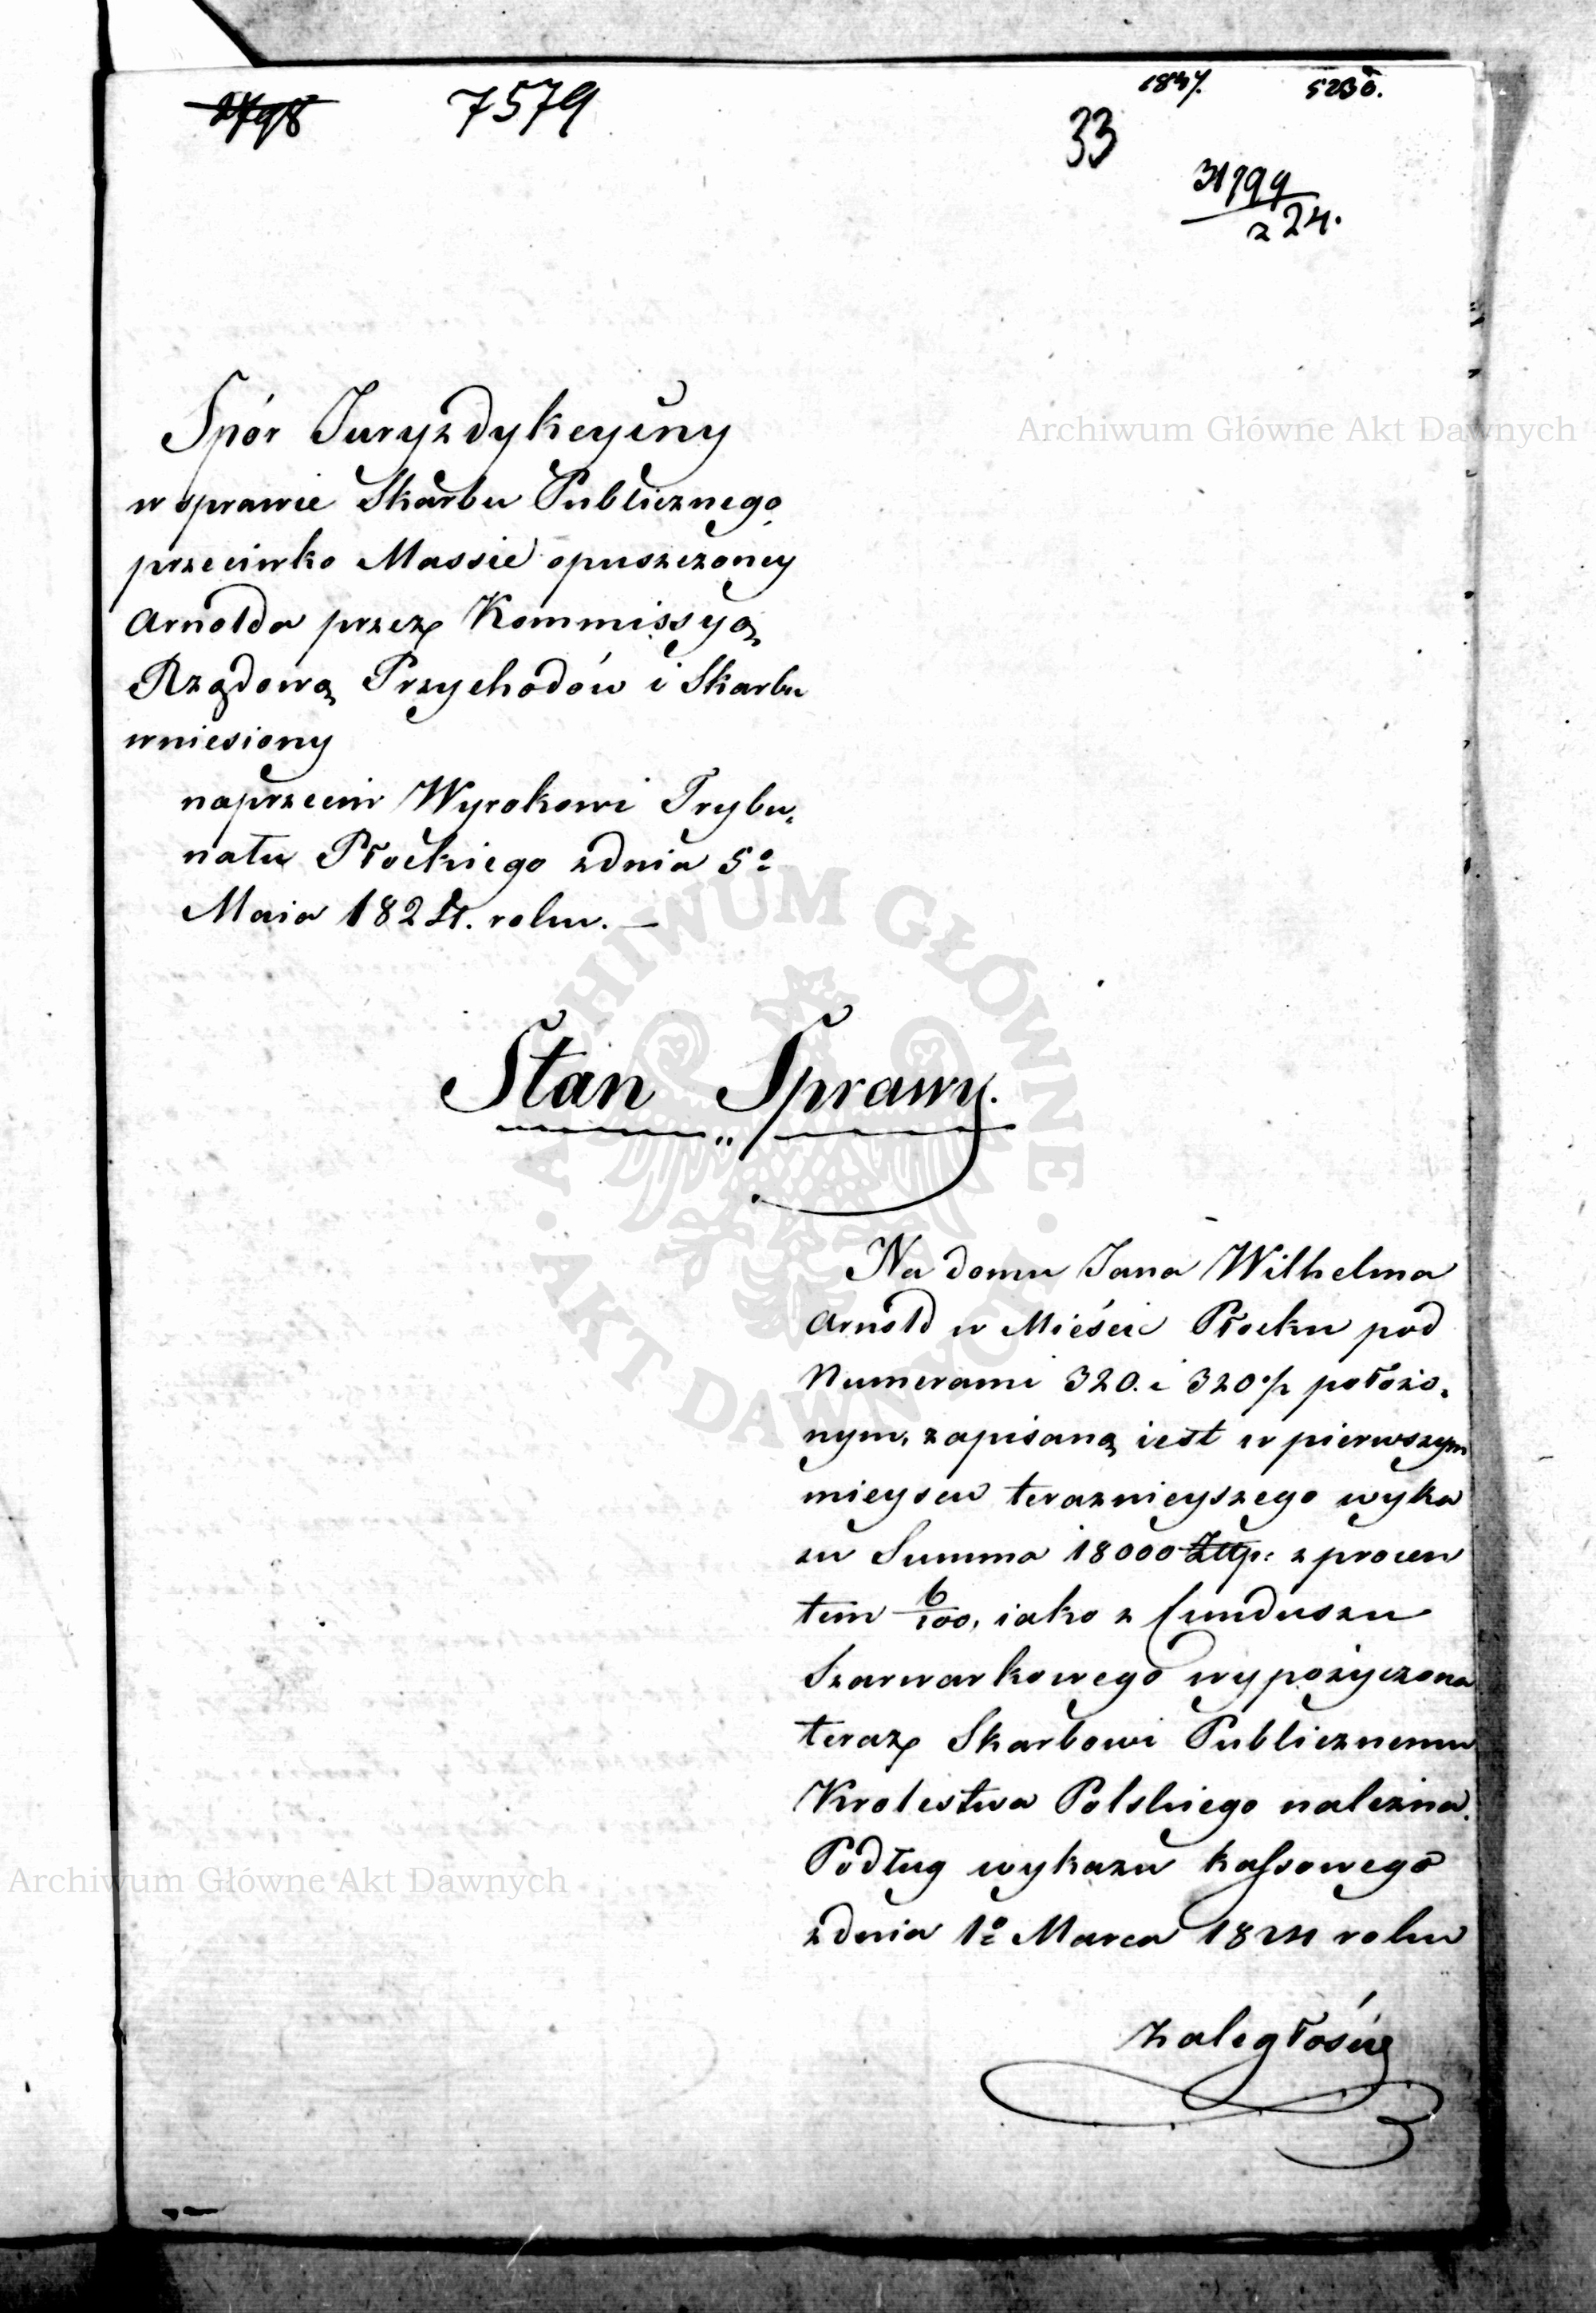 7579
33
31799
z 24.
Archiwum Główne Akt Dawnych
Spór Juryzdykcyiny
w sprawie Skarbu Publicznego
przeciwko Massie opuszczoney
Arnolda przez Kommissyą
Rządową Przychodów i Skarbu
wniesiony
naprzeciw Wyrokowi Trybu,
nału Płockiego z dnia 5º
Maia 1824. roku. —
Stan Sprawy.
ARCHIWUM GŁÓWNE AKT DAWNYCH
Na domu Jana Wilhelma
Arnold w Mieście Płocku pod
Numerami 320. i 320 położo,
nym, zapisaną iest w pierwszym
mieyscu teraznieyszego wyka
zu Summa 18000 Złłp: z procen
tem 6/100, iako z funduszu
Szarwarkowego wypożyczona
teraz Skarbowi Publicznemu
Krolestwa Polskiego należna.
Podług wykazu kassowego
Archiwum Główne Akt Dawnych
z dnia 1º Marca 1824 roku
zaległości